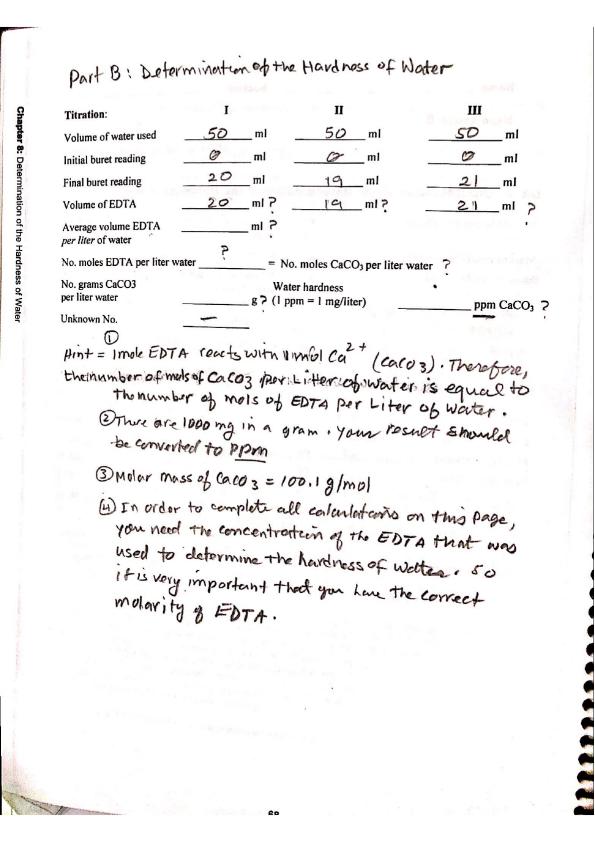 Part B: Determination of the Hardness of Water
Chapter 8: Determination of the Hardness of Water
Titration: I II III
Volume of water used 50 ml 50 ml 50 ml
Initial buret reading 0 ml 0 ml 0 ml
Final buret reading 20 ml 19 ml 21 ml
Volume of EDTA 20 ml ? 19 ml ? 21 ml ?
Average volume EDTA ml ?
per liter of water
No. moles EDTA per liter water ? = No. moles CaCO3 per liter water ?
No. grams CaCO3 Water hardness
per liter water g ? (1 ppm = 1 mg/liter) ppm CaCO3 ?
Unknown No. —
①
Hint = 1mole EDTA reacts with 1 mol Ca2+ (CaCO3). Therefore,
the number of mols of CaCO3 per Litter of water is equal to
the number of mols of EDTA per Liter of water.
② There are 1000 mg in a gram. Your result should
be converted to ppm
③ Molar mass of CaCO3 = 100.1 g/mol
④ In order to complete all calculations on this page,
you need the concentration of the EDTA that was
used to determine the hardness of water. So
it is very important that you have the correct
molarity of EDTA.
68